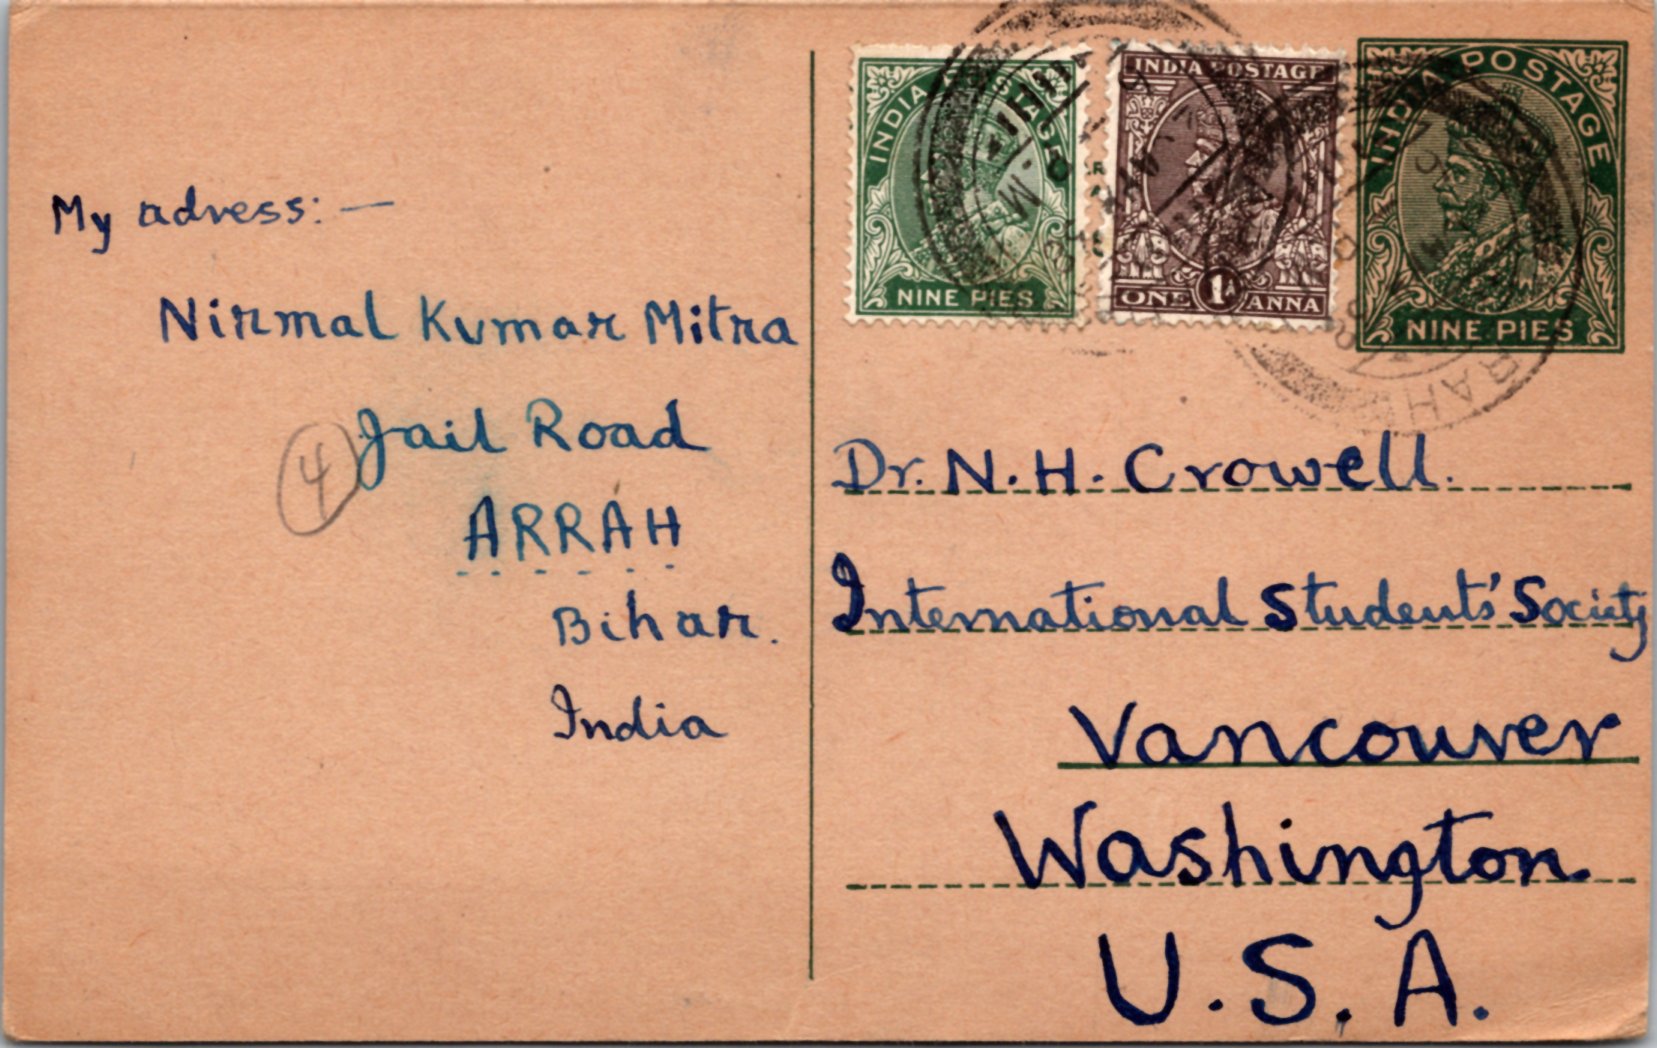 My adress: —
Nirmal Kumar Mitra
Jail Road
4
ARRAH
Bihar.
India
INDIA POSTAGE
NINE PIES
INDIA POSTAGE
ONE 1A ANNA
INDIA POSTAGE
NINE PIES
Dr. N. H. Crowell.
International Students' Society
Vancouver
Washington.
U. S. A.